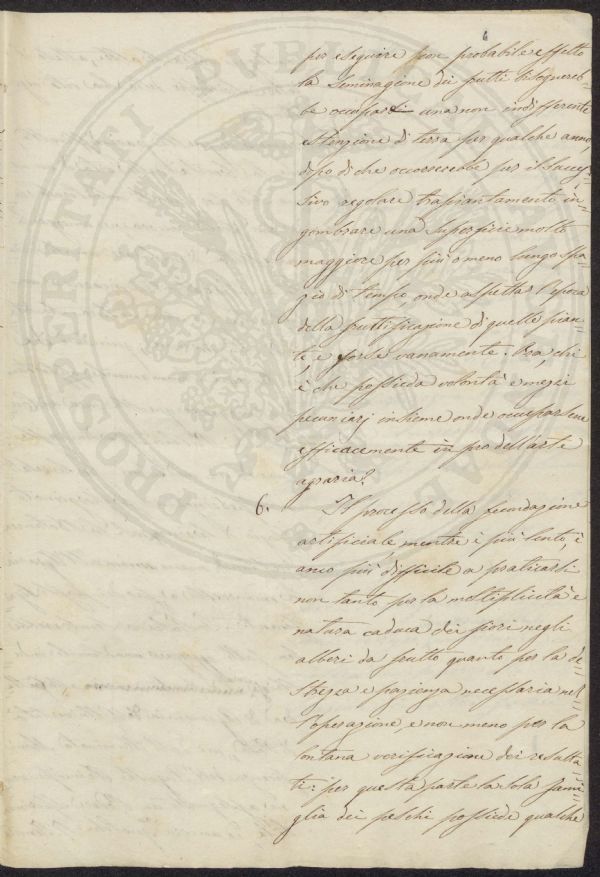 6
per eseguire con probabile effetto
la seminagione dei frutti bisognereb-
be occupar una non indifferente
estenzione di terra per qualche anno,
dopo di che occorrerebbe per il succes-
sivo regolare trapiantamento in-
gombrare una superficie molto
maggiore per più o meno lungo spa-
zio di tempo onde aspettar l'epoca
della fruttificazione di quelle pian-
te, e forse vanamente. Ora, chi
è che possieda volontà e mezzi
pecuniarj insieme onde occuparsene
efficacemente in pro dell'arte
agraria?
6. Il processo della fecondazione
artificiale, mentre è più lento, è
anco più difficile a praticarsi
non tanto per la moltiplicità e
natura caduca dei fiori negli
alberi da frutto quanto per la de-
strezza e pazienza necessaria nel-
l'operazione, e non meno per la
lontana verificazione dei resulta-
ti: per questa parte la sola fami-
glia dei peschi possiede qualche
PROSPERITATI PUBLICAE